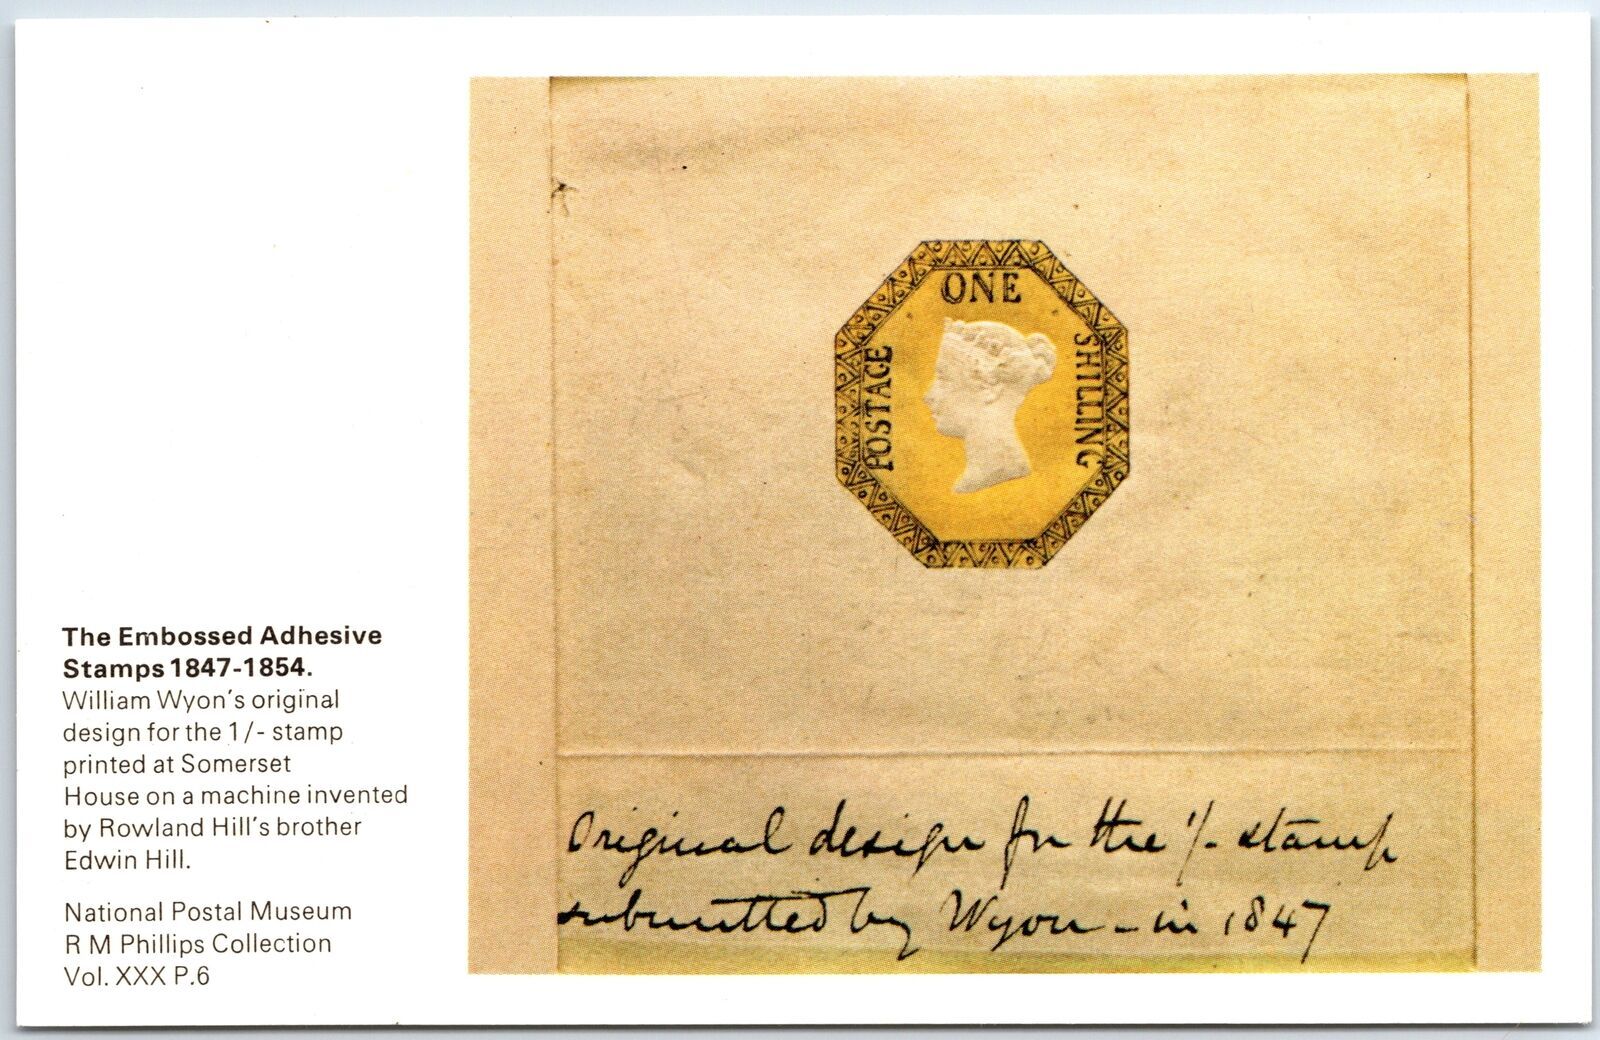 The Embossed Adhesive
Stamps 1847-1854.
William Wyon's original
design for the 1/- stamp
printed at Somerset
House on a machine invented
by Rowland Hill's brother
Edwin Hill.
National Postal Museum
R M Phillips Collection
Vol. XXX P.6
ONE
POSTAGE
SHILLING
Original design for the 1/- stamp
submitted by Wyon - in 1847